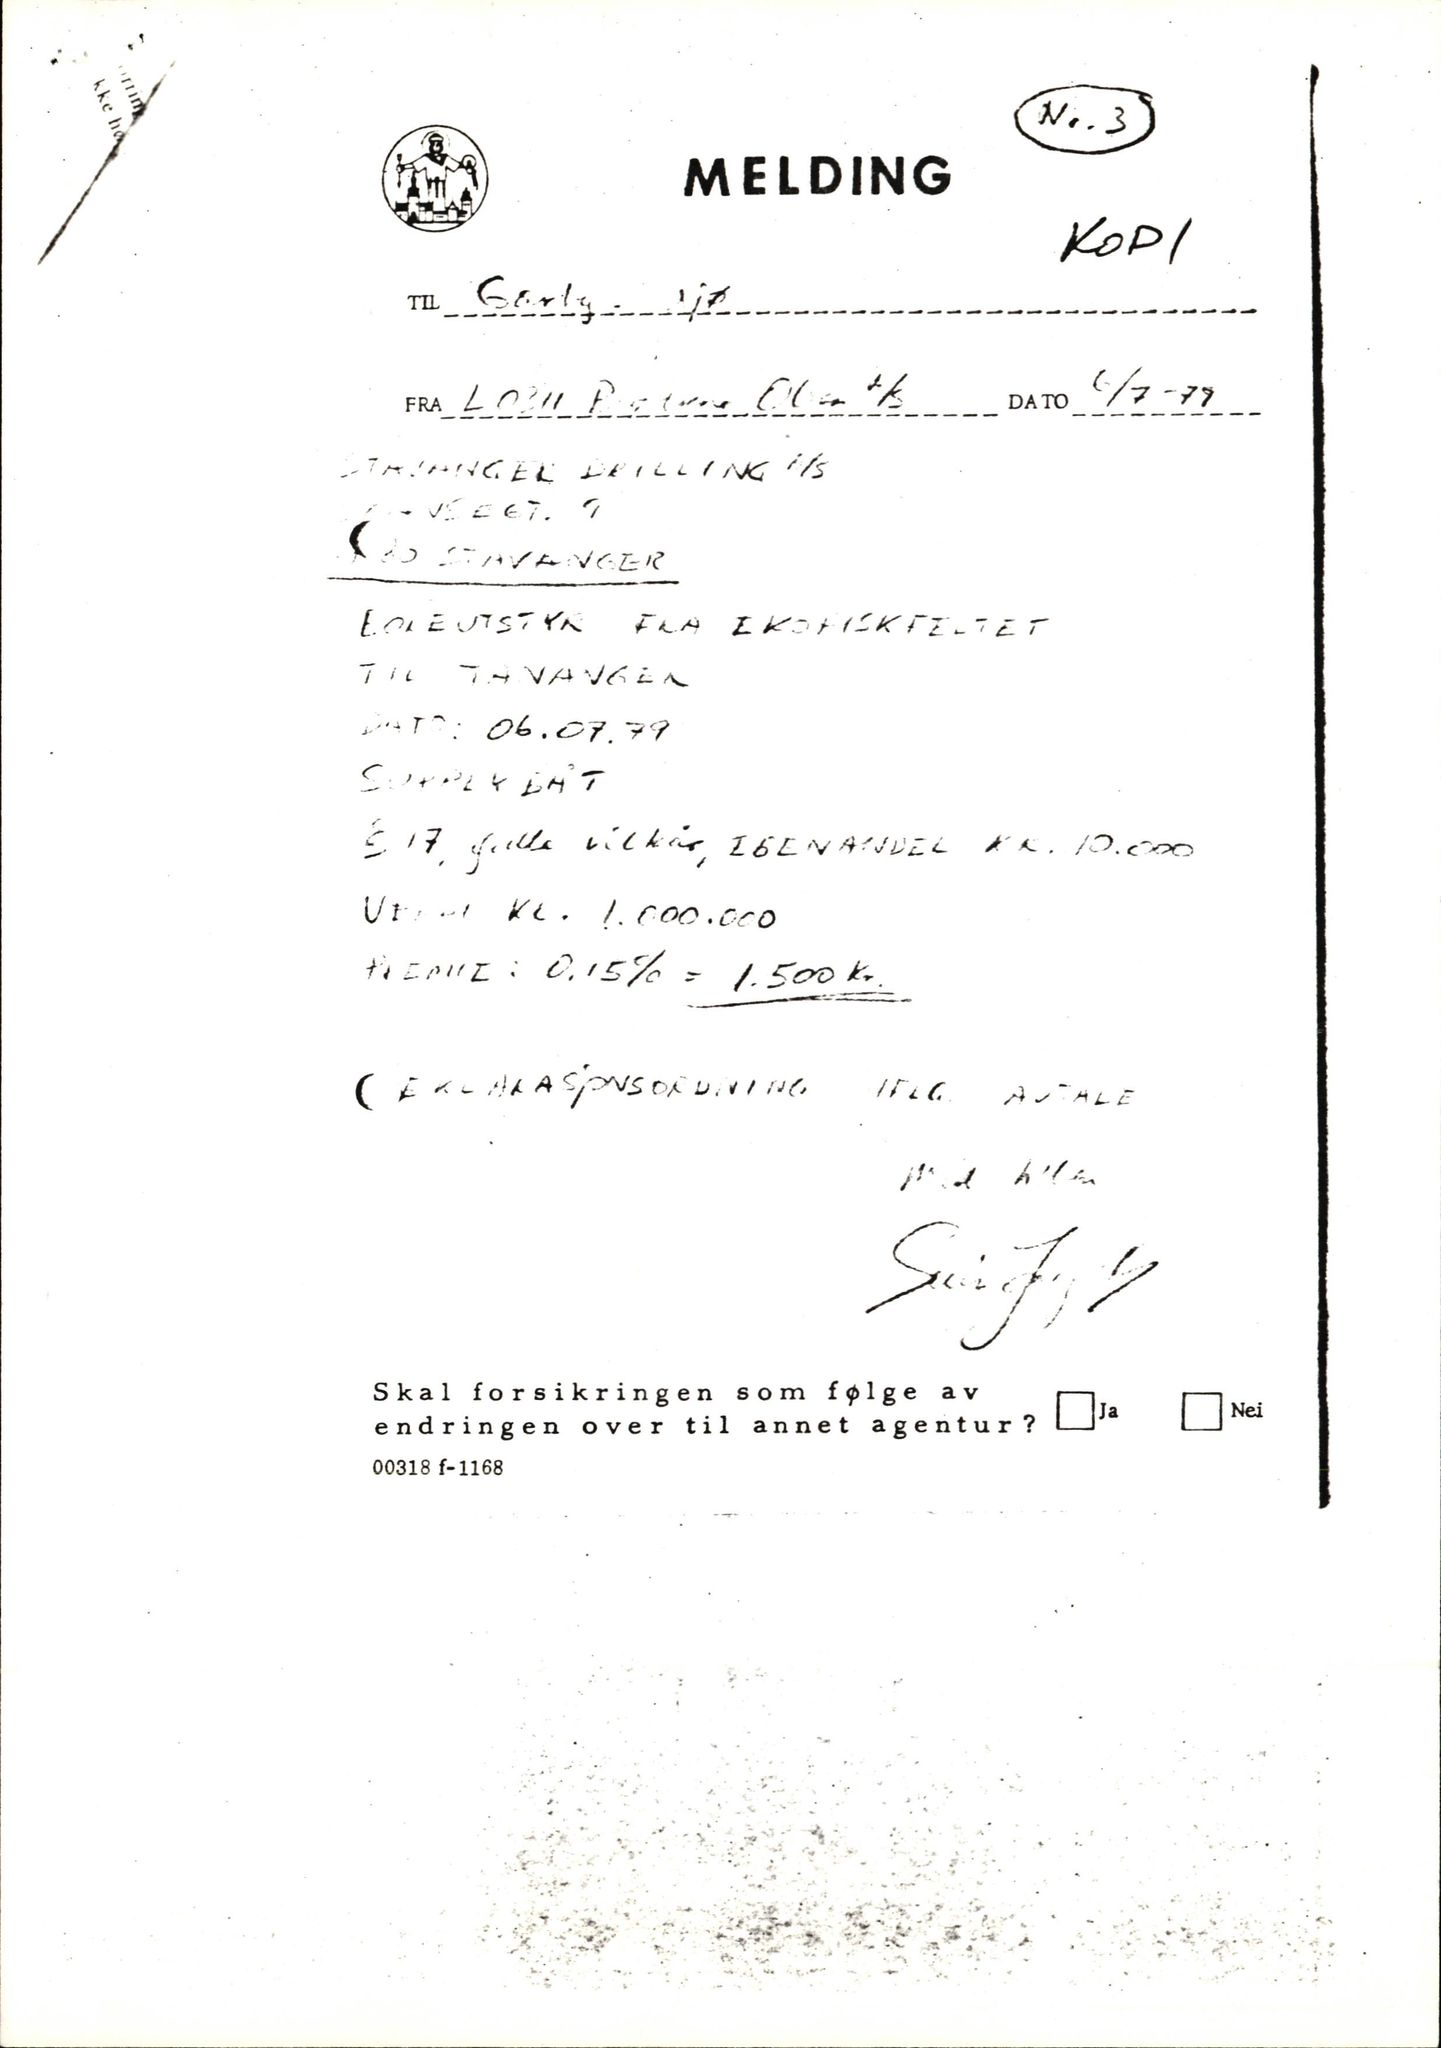 Nr. 3
MELDING
KOPI
TIL
FRA DATO 6/7-79
STAVANGER DRILLING A/S
9
STAVANGER
BOREUTSTYR FRA EKOFISKFELTET
TIL TANANGER
DATO: 06.07.79
SUPPLYBÅT
§ 17, fulle vilkår, EGENANDEL KR. 10.000
VERDI KR. 1.000.000
PREMIE: 0.15% = 1.500 Kr.
EKLARASJONSORDNING IFLG. AVTALE
Med hilsen
Skal forsikringen som følge av
endringen over til annet agentur? Ja Nei
00318 f-1168